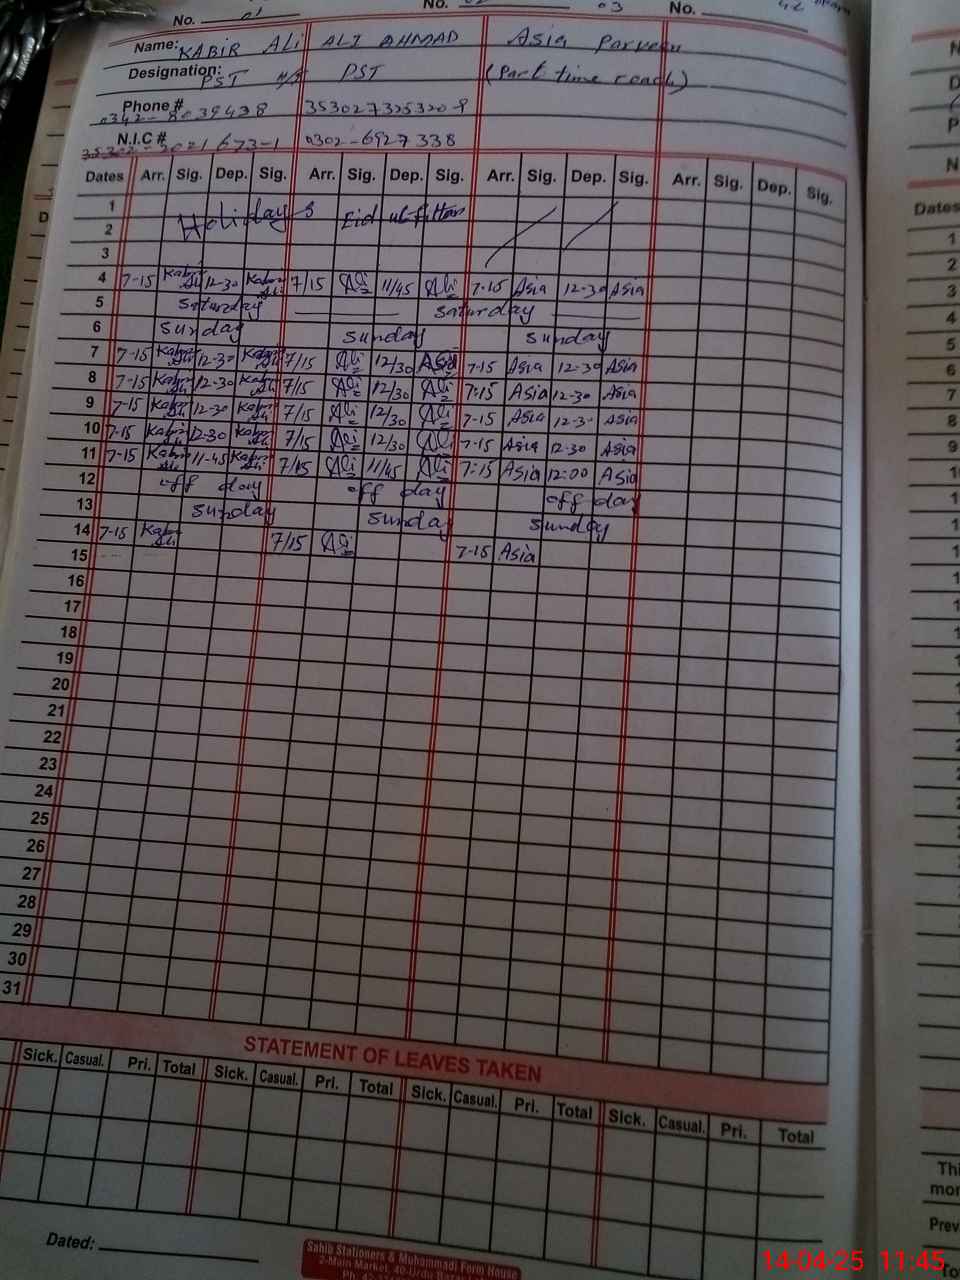 No. 01 No. 03 No.
Name: KABIR ALI ALI AHMAD Asia Parveen
Designation: PST PST (Part time reach)
Phone # 0342-8039438 353027325320-9
N.I.C # 35302-3021673-1 0302-6927338
Dates Arr. Sig. Dep. Sig. Arr. Sig. Dep. Sig. Arr. Sig. Dep. Sig. Arr. Sig. Dep. Sig.
1
2 Holidays Eid ul-fitar
3
4 7-15 Kabir Ali 12-30 Kabir Ali 7/15 Ali 11/45 Ali 7-15 Asia 12-30 Asia
5 Saturday Saturday
6 Sunday Sunday Sunday
7 7-15 Kabir Ali 12-30 Kabir Ali 7/15 Ali 12/30 7-15 Asia 12-30 Asia
8 7-15 Kabir Ali 12-30 Kabir Ali 7/15 Ali 12/30 Ali 7:15 Asia 12-30 Asia
9 7-15 Kabir Ali 12-30 Kabir Ali 7/15 Ali 12/30 Ali 7-15 Asia 12-3 Asia
10 7-15 Kabir Ali 12-30 Kabir Ali 7/15 Ali 12/30 Ali 7-15 Asia 12-30 Asia
11 7-15 Kabir Ali 11-45 Kabir Ali 7/15 Ali 11/45 Ali 7:15 Asia 12:00 Asia
12 off day off day off day
13 Sunday Sunday Sunday
14 7-15 Kabir Ali 7/15 Ali 7-15 Asia
15
16
17
18
19
20
21
22
23
24
25
26
27
28
29
30
31
STATEMENT OF LEAVES TAKEN
Sick. Casual. Pri. Total Sick. Casual. Pri. Total Sick. Casual. Pri. Total Sick. Casual. Pri. Total
Dated:
Sahib Stationers & Muhammadi Form House
2-Main Market, 40-Urdu
Ph.
N
D
P
N
Dates
1
2
3
4
5
6
7
8
9
10
Thi
mor
Prev
To
14-04-25 11:45